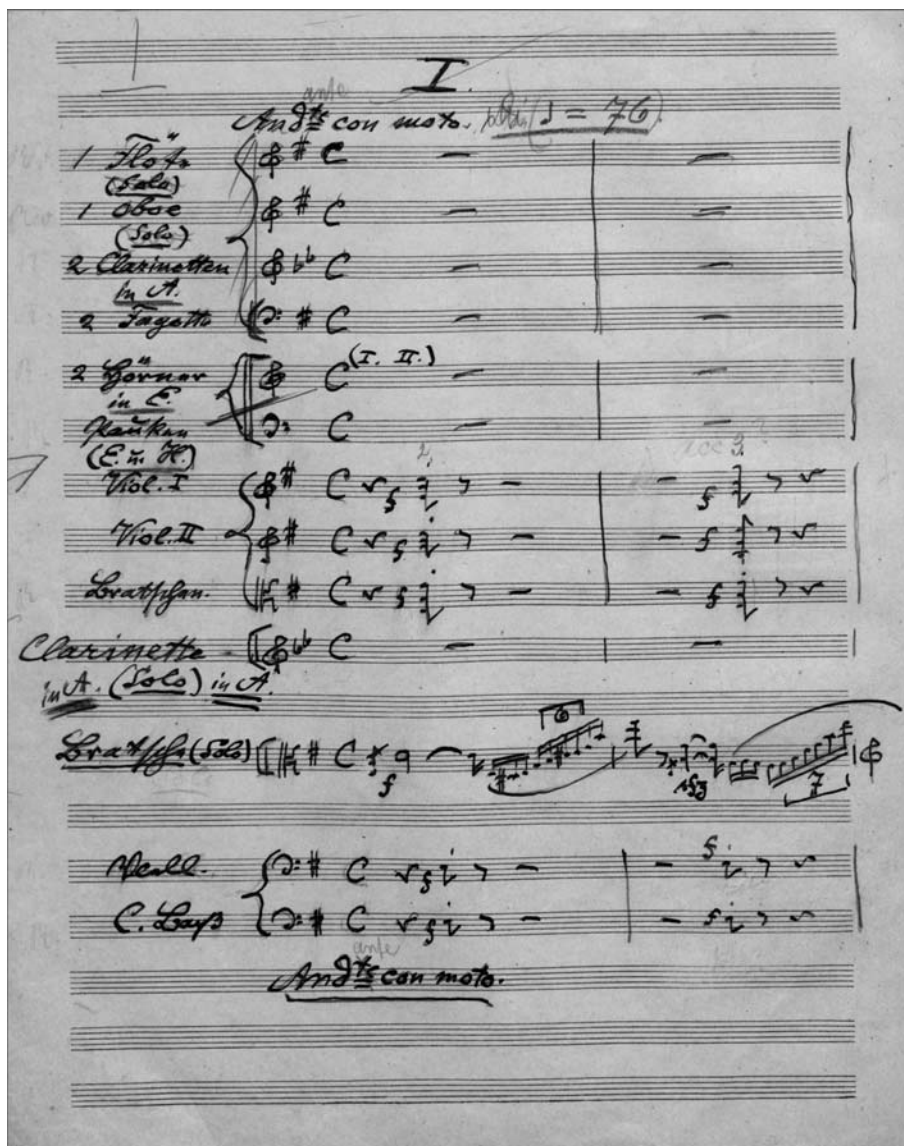 I.
ante
Andte con moto. (♩ = 76)
1 Flöte
(Solo)
1 Oboe
(Solo)
2 Clarinetten
in A.
2 Fagotte
2 Hörner (I. II.)
in E.
Pauken
(E. u. H.)
2.
Viol. I f f
Viol. II f f
Bratschen. f f
Clarinette
in A. (Solo) in A.
6
Bratsche (Solo) f sfz 7
Vcell. f f
C. Bass f f
ante
Andte con moto.